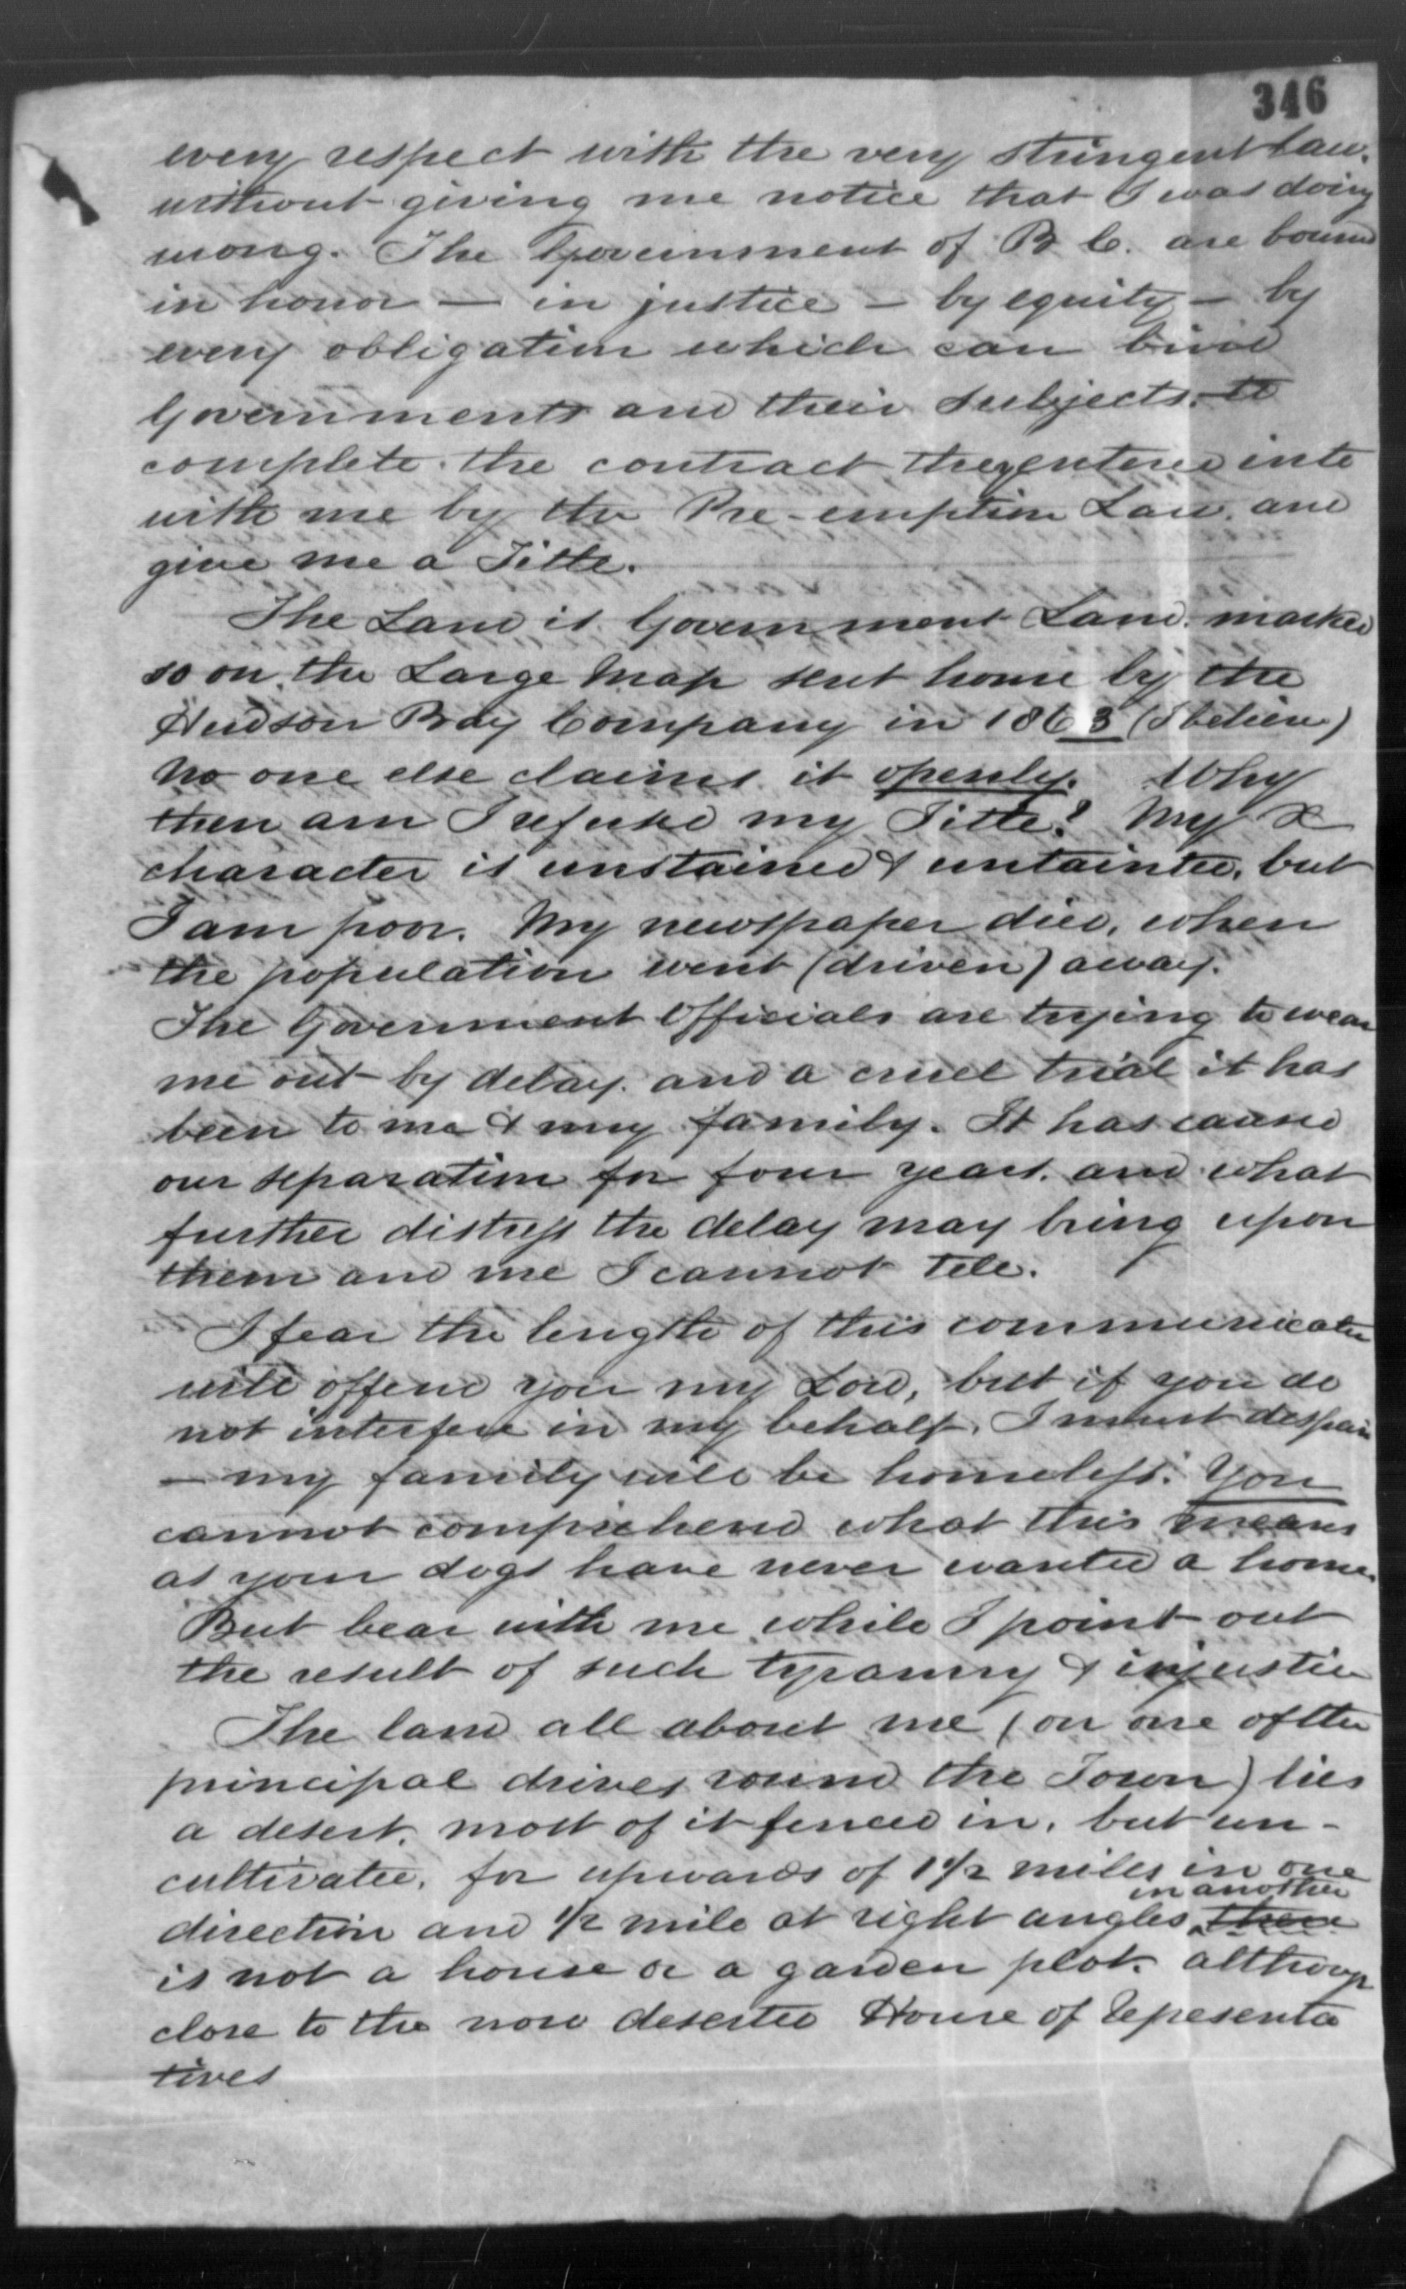 346
every respect with the very stringent Law.
without giving me notice that I was doing
wrong. The Government of B C. are bound
in honor — in justice — by equity — by
every obligation which can bind
Governments and their subjects. to
complete the contract they entered into
with me by the Pre-emption Law. and
give me a Title.
The Land is Government Land. marked
so on the Large Map sent home by the
Hudson Bay Company in 1863 (I believe)
No one else claims it openly. Why
then am I refused my Title? My
character is unstained & untainted, but
I am poor. My newspaper died, when
the population went (driven) away.
The Government Officials are trying to wear
me out by delay. and a cruel trial it has
been to me & my family. It has caused
our separation for four years. and what
further distress the delay may bring upon
them and me I cannot tell.
I fear the length of this communication
will offend you my Lord, but if you do
not interfere in my behalf. I must despair
— my family will be homeless. You
cannot comprehend what this means
as your dogs have never wanted a home.
But bear with me while I point out
the result of such tyranny & injustice
The land all about me (on one of the
principal drives round the Town) lies
a desert. most of it fenced in, but un-
cultivated. for upwards of 1 1/2 miles in one
in another
direction and 1/2 mile at right angles there
is not a house or a garden plot. although
close to the now deserted House of Representa
tives